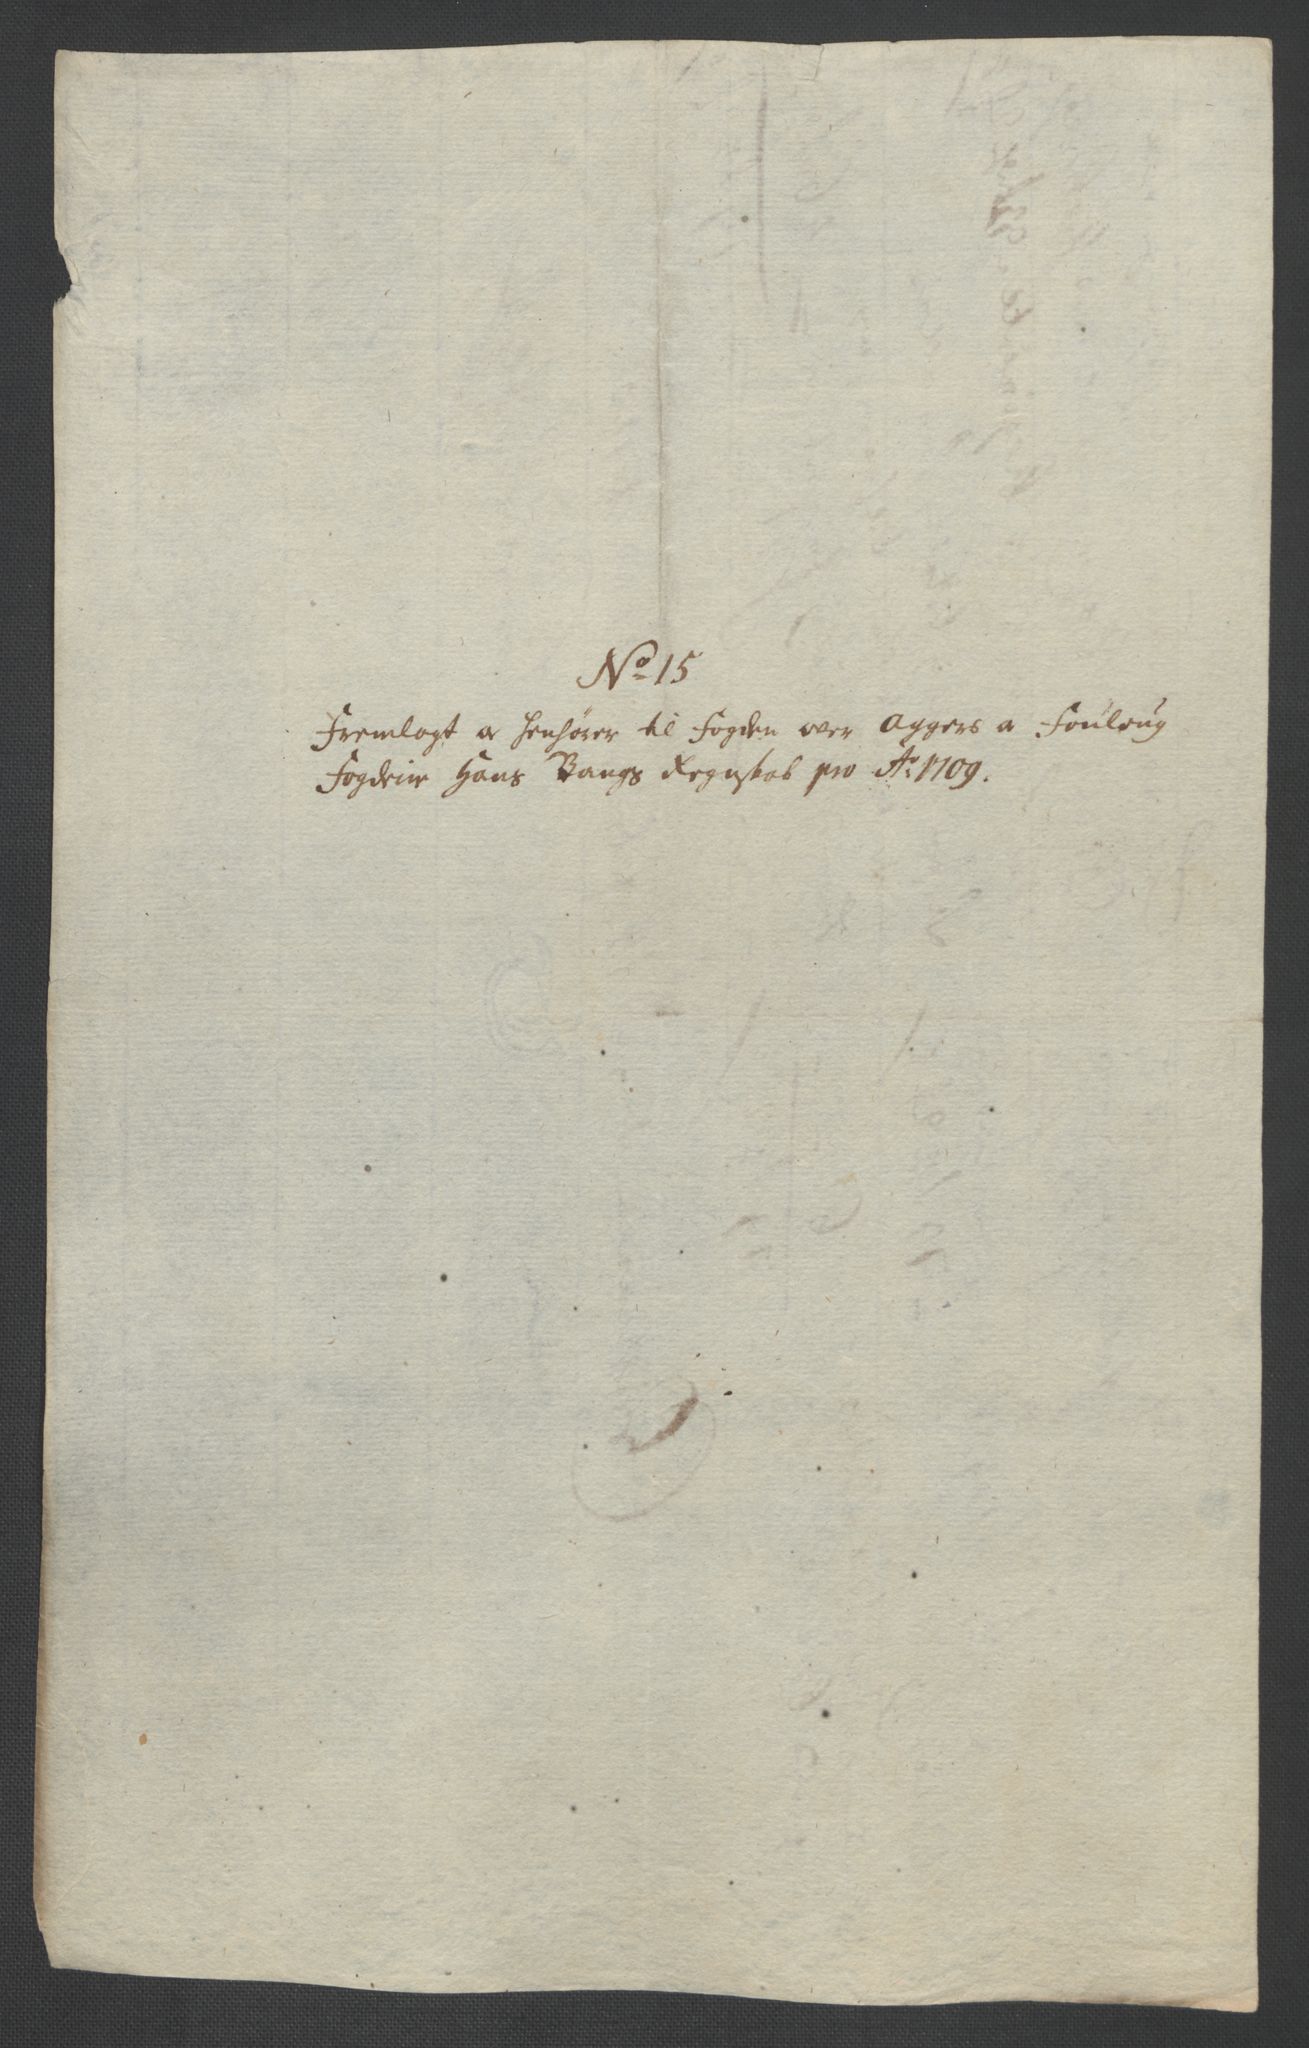 No 15
Fremlagt og henhører til Fogden over Aggers og Fouloug
Fogderie Hans Bangs Regnskab pro Ao 1709.